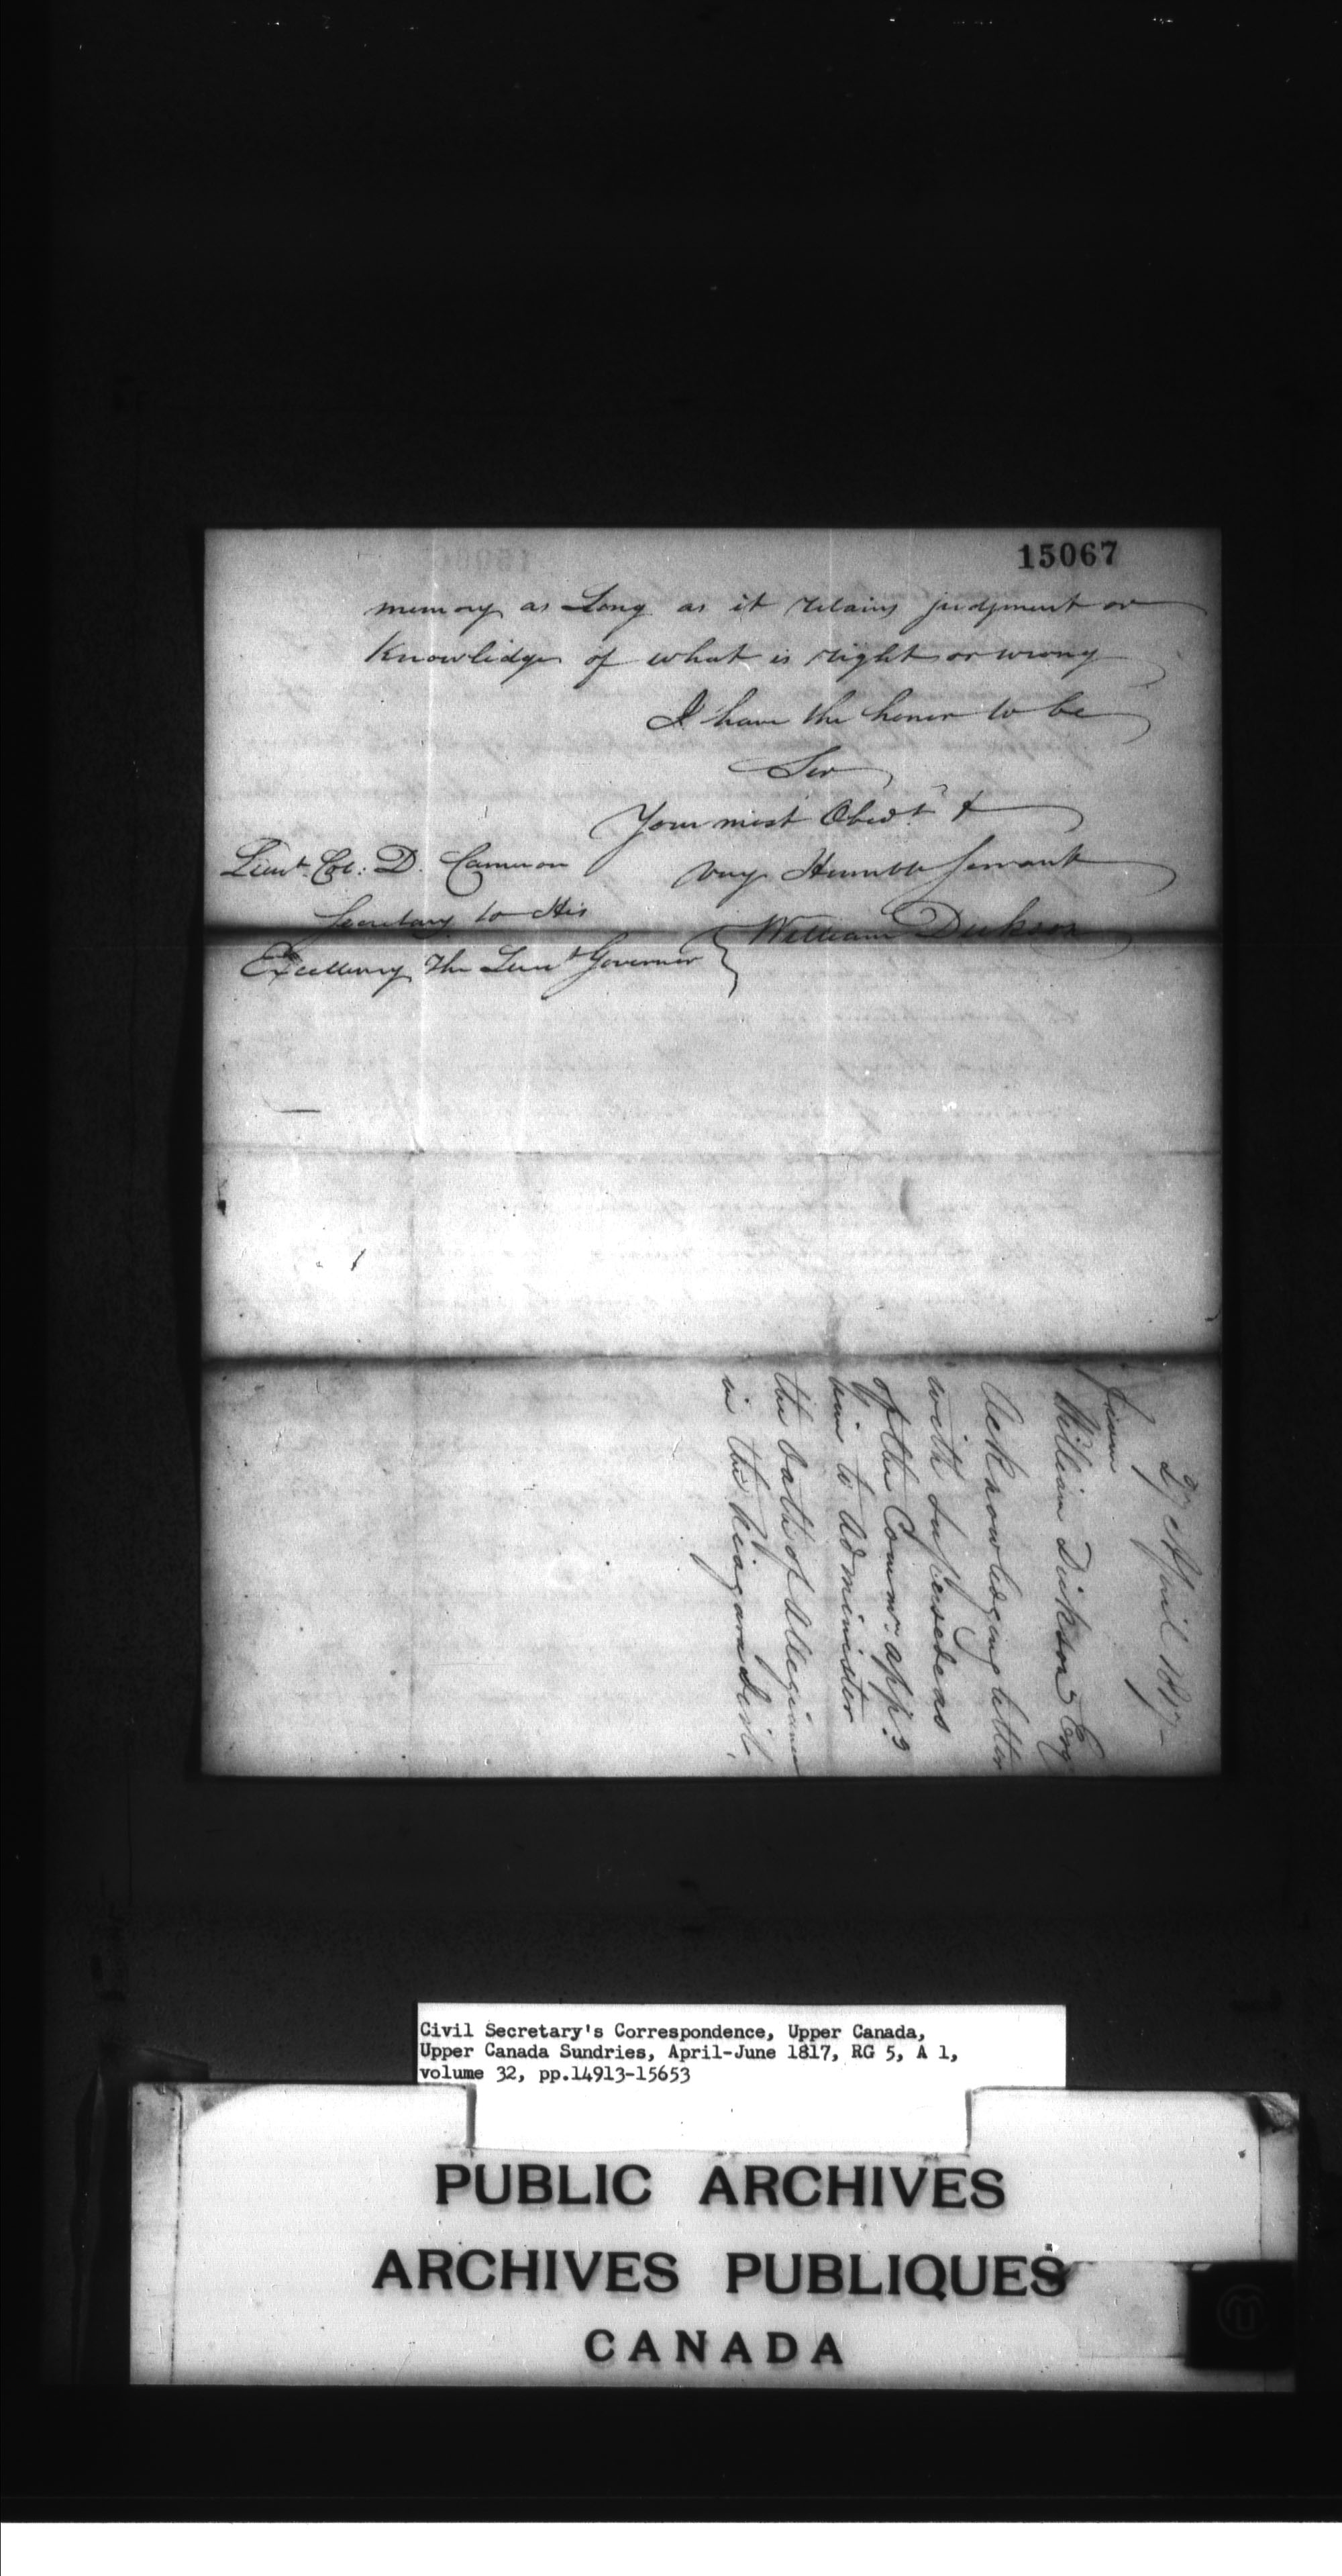 15067
memory as Long as it retains judgment or
Knowledge of what is right or wrong
I have the honor to be
Sir
Your most Obedt &
very Humble Servant
William Dickson
Lieut. Col: D. Cameron
Secretary to His
Excellency The Lieut Governor
27 April 1817
From
William Dickson Esq
Acknowledging letter
with Supersedeas
of the Commr. appd
him to Administer
the Oath of Allegiance
in the Niagara Dist.
Civil Secretary's Correspondence, Upper Canada,
Upper Canada Sundries, April-June 1817, RG 5, A 1,
volume 32, pp.14913-15653
PUBLIC ARCHIVES
ARCHIVES PUBLIQUES
CANADA